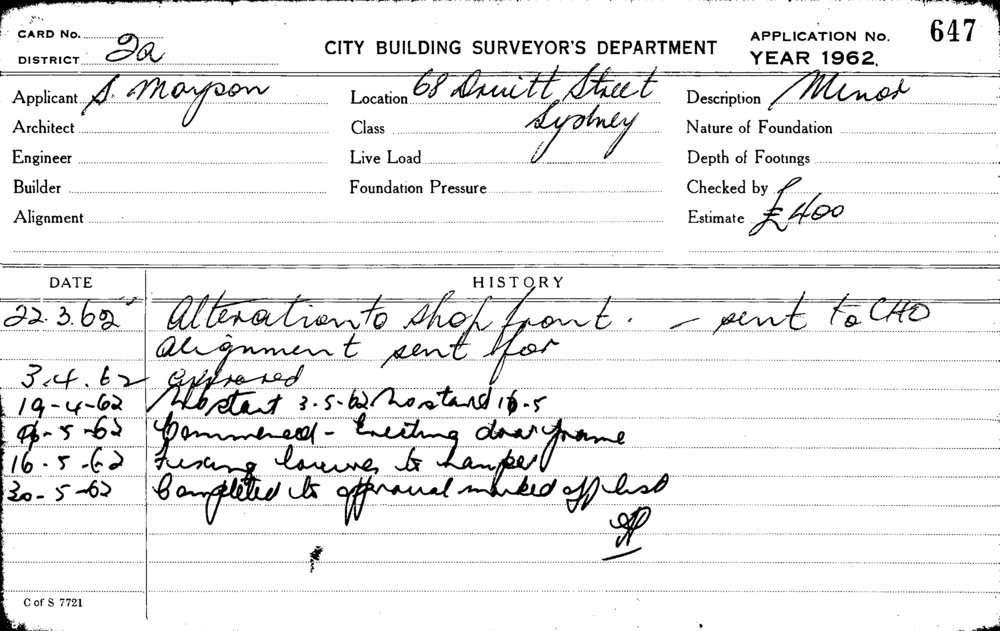 CARD No.
DISTRICT 2a
CITY BUILDING SURVEYOR'S DEPARTMENT
APPLICATION No. 647
YEAR 1962.
Applicant S. Mayson
Location 68 Druitt Street
Sydney
Description Minor
Architect
Class
Nature of Foundation
Engineer
Live Load
Depth of Footings
Builder
Foundation Pressure
Checked by
Alignment
Estimate £400
DATE HISTORY
22.3.62 Alteration to shop front. — sent to CHO
Alignment sent for
3.4.62 approved
19-4-62 No start 3.5-62 No start 10-5
5-62 Commenced - Erecting door frame
16.5-62 Fixing louvres to hamper
30-5-62 Completed to approval marked off list
C of S 7721